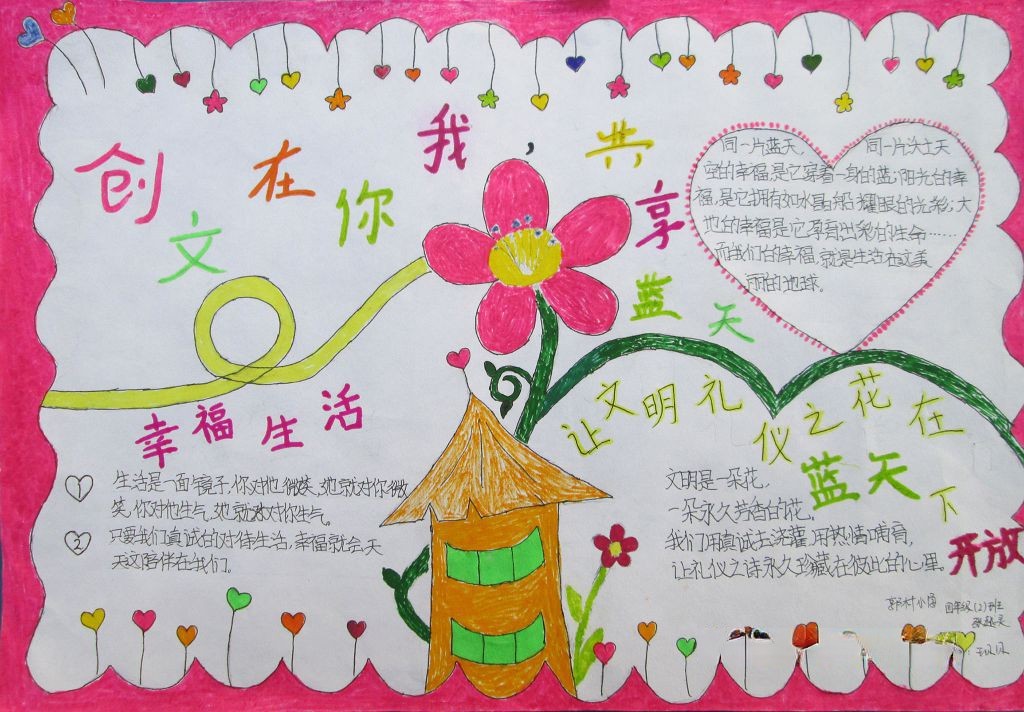 创文在你我,共享蓝天
同一片蓝天, 同一片沃土天
空的幸福,是它穿着一身的蓝;阳光的幸
福,是它拥有如水晶船耀眼的光彩;大
地的幸福,是它孕育出彩的生命……
而我们的幸福,就是生活在这美
丽的地球。
幸福生活
① 生活是一面镜子,你对他微笑,她就对你微
笑,你对他生气,她就对你生气。
② 只要我们真诚的对待生活,幸福就会天
天这陪伴在我们。
让文明礼仪之花在
蓝天下
开放
文明是一朵花,
一朵永久芳香的花。
我们用真诚去浇灌,用热情哺育,
让礼仪之诗永久珍藏在彼此的心里。
郭村小学 四年级(2)班